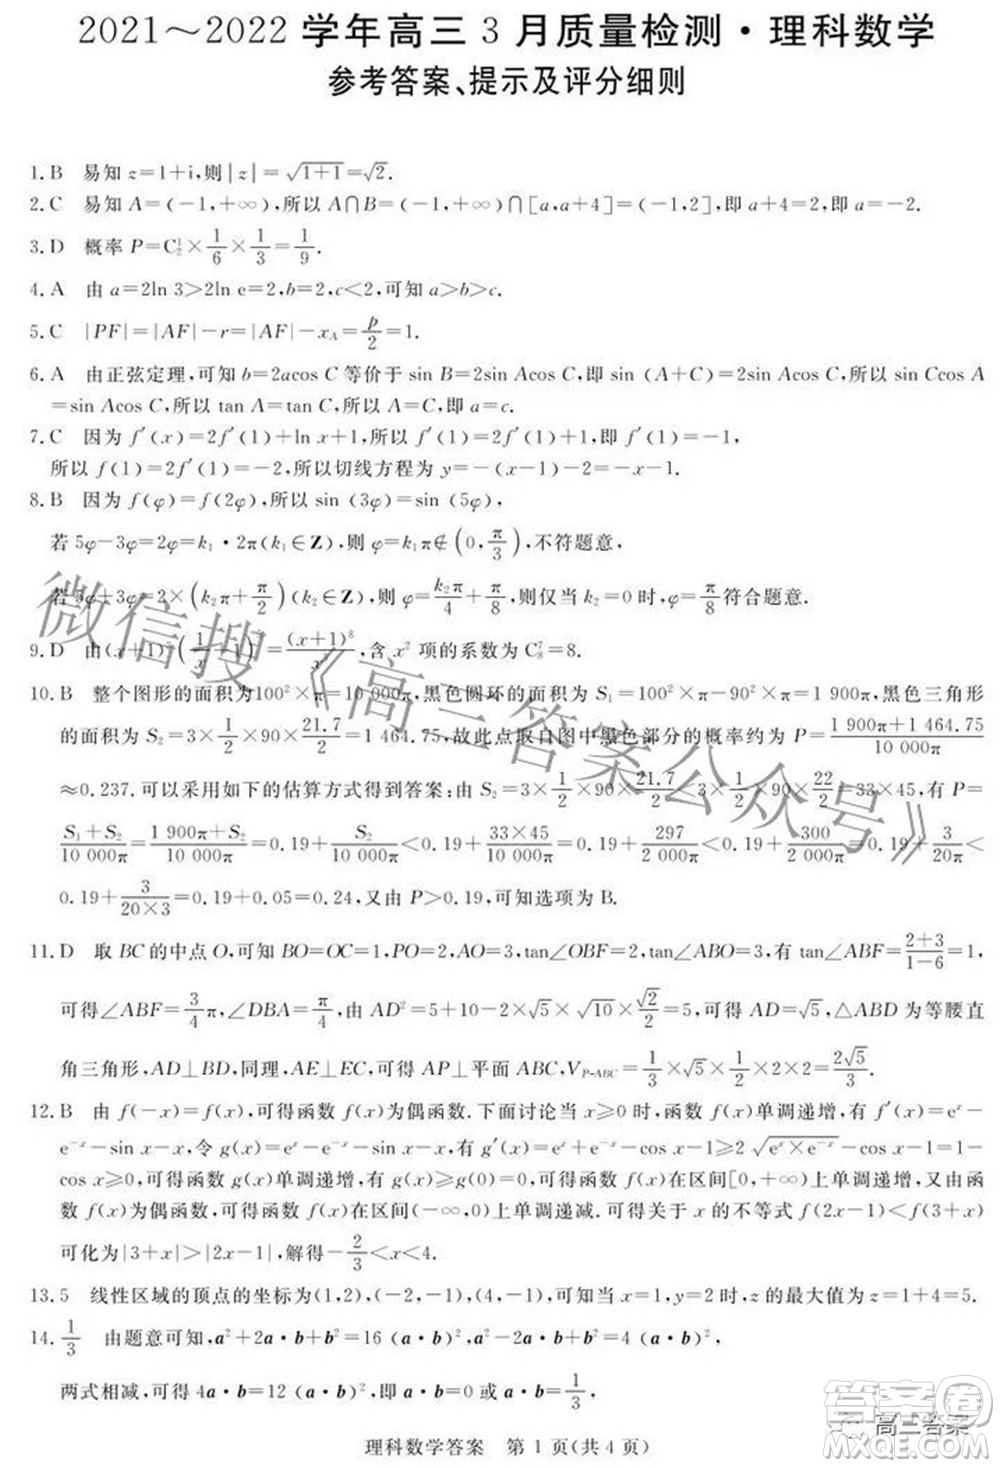 2021～2022 学年高三 3 月质量检测·理科数学
参考答案、提示及评分细则
1. B 易知 z=1+i,则|z|=√(1+1)=√2.
2. C 易知 A=(-1,+∞),所以 A∩B=(-1,+∞)∩[a,a+4]=(-1,2],即 a+4=2,即 a=-2.
3. D 概率 P=C₂¹×1/6×1/3=1/9.
4. A 由 a=2ln 3>2ln e=2,b=2,c<2,可知 a>b>c.
5. C |PF|=|AF|-r=|AF|-x_A=p/2=1.
6. A 由正弦定理,可知 b=2acos C 等价于 sin B=2sin Acos C,即 sin (A+C)=2sin Acos C,即 sin Ccos A
=sin Acos C,所以 tan A=tan C,所以 A=C,即 a=c.
7. C 因为 f′(x)=2f′(1)+ln x+1,所以 f′(1)=2f′(1)+1,即 f′(1)=-1,
所以 f(1)=2f′(1)=-2,所以切线方程为 y=-(x-1)-2=-x-1.
8. B 因为 f(φ)=f(2φ),所以 sin (3φ)=sin (5φ),
若 5φ-3φ=2φ=k₁·2π(k₁∈Z),则 φ=k₁π∉(0,π/3),不符题意,
若 5φ+3φ=2×(k₂π+π/2)(k₂∈Z),则 φ=k₂π/4+π/8,则仅当 k₂=0 时,φ=π/8符合题意.
9. D 由(x+1)⁷(1/x+1)=(x+1)⁸/x,含 x² 项的系数为 C₈⁷=8.
10. B 整个图形的面积为100²×π=10 000π,黑色圆环的面积为 S₁=100²×π-90²×π=1 900π,黑色三角形
的面积为 S₂=3×1/2×90×21.7/2=1 464.75,故此点取自图中黑色部分的概率约为 P=(1 900π+1 464.75)/(10 000π)
≈0.237.可以采用如下的估算方式得到答案:由 S₂=3×1/2×90×21.7/2<3×1/2×90×22/2=33×45,有 P=
(S₁+S₂)/(10 000π)=(1 900π+S₂)/(10 000π)=0.19+S₂/(10 000π)<0.19+(33×45)/(10 000π)=0.19+297/(2 000π)<0.19+300/(2 000π)=0.19+3/(20π)<
0.19+3/(20×3)=0.19+0.05=0.24,又由 P>0.19,可知选项为 B.
11. D 取 BC 的中点 O,可知 BO=OC=1,PO=2,AO=3,tan∠OBF=2,tan∠ABO=3,有 tan∠ABF=(2+3)/(1-6)=-1,
可得∠ABF=3/4π,∠DBA=π/4,由 AD²=5+10-2×√5×√10×√2/2=5,可得 AD=√5,△ABD 为等腰直
角三角形,AD⊥BD,同理,AE⊥EC,可得 AP⊥平面 ABC,V_P-ABC=1/3×√5×1/2×2×2=2√5/3.
12. B 由 f(-x)=f(x),可得函数 f(x)为偶函数.下面讨论当 x≥0 时,函数 f(x)单调递增,有 f′(x)=eˣ-
e⁻ˣ-sin x-x,令 g(x)=eˣ-e⁻ˣ-sin x-x,有 g′(x)=eˣ+e⁻ˣ-cos x-1≥2√(eˣ×e⁻ˣ)-cos x-1=1-
cos x≥0,可得函数 g(x)单调递增,可得 g(x)≥g(0)=0,可得函数 f(x)在区间[0,+∞)上单调递增,又由函
数 f(x)为偶函数,可得函数 f(x)在区间(-∞,0]上单调递减.可得关于 x 的不等式 f(2x-1)<f(3+x)
可化为|3+x|>|2x-1|,解得-2/3<x<4.
13. 5 线性区域的顶点的坐标为(1,2),(-2,-1),(4,-1),可知当 x=1,y=2 时,z 的最大值为 z=1+4=5.
14. 1/3 由题意可知,a²+2a·b+b²=16 (a·b)²,a²-2a·b+b²=4 (a·b)²,
两式相减,可得 4a·b=12(a·b)²,a·b=0 或 a·b=1/3,
理科数学答案 第 1 页(共 4 页)
微信搜《高三答案公众号》
高三答案
答案圈
MXQE.COM